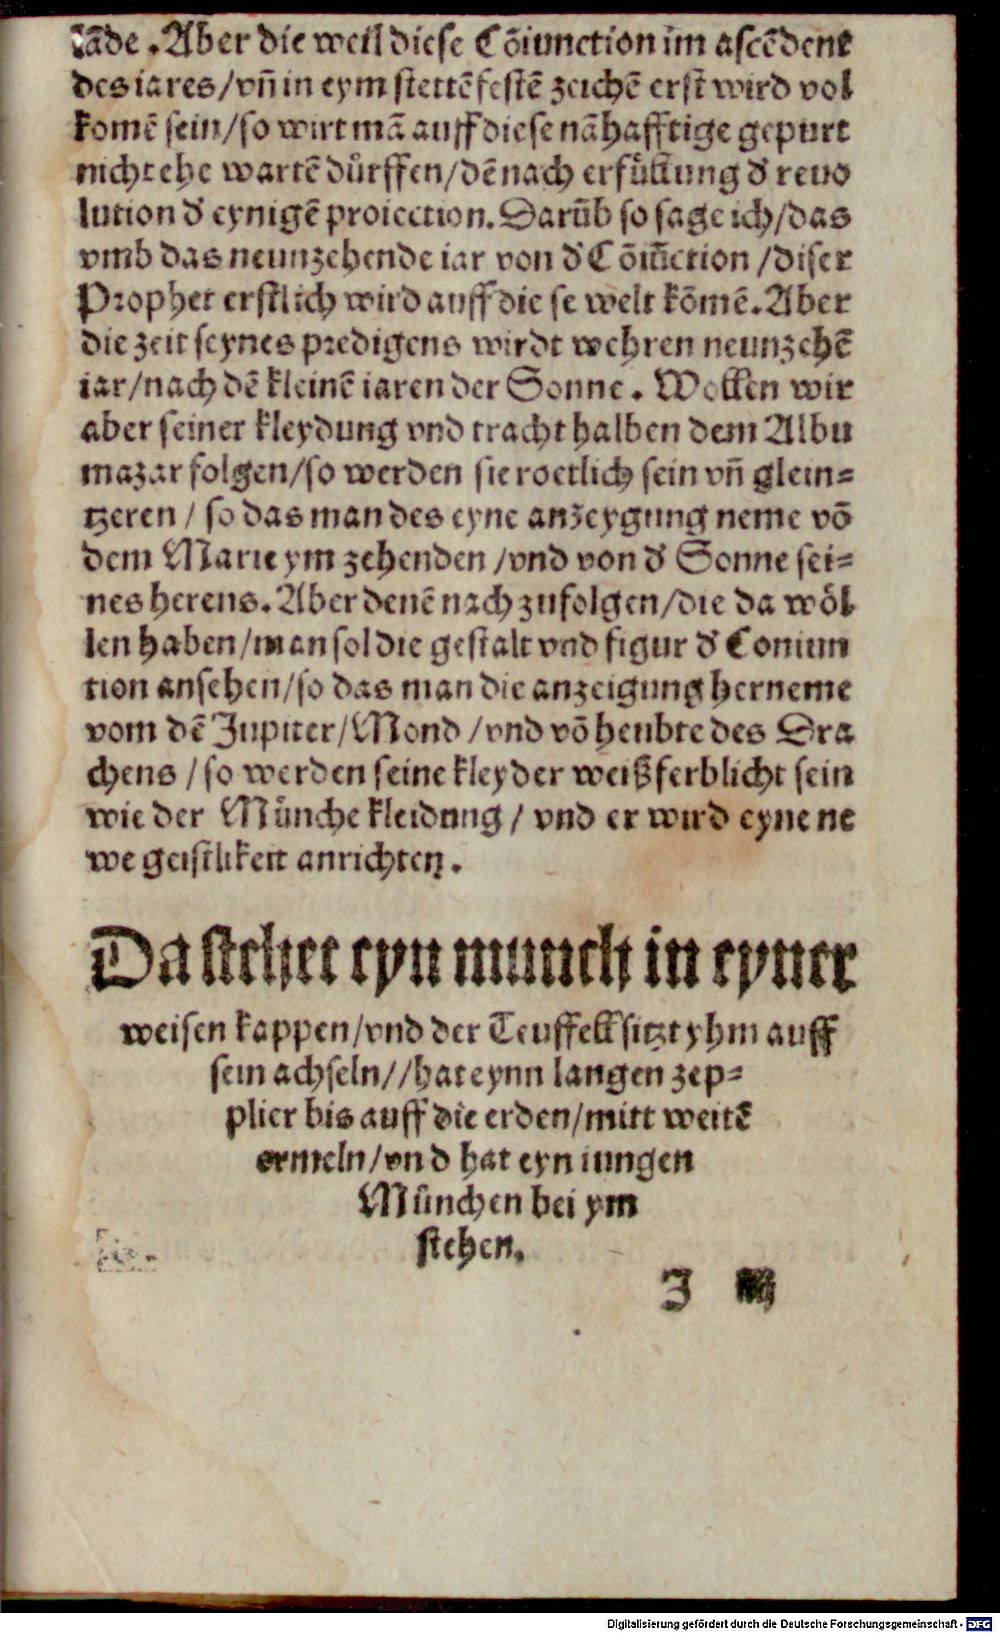 lāde . Aber die weil diese Cōiunction im ascēdent
des iares / vn̄ in eym stettē festē zeichē erst wird vol
komē sein / so wirt mā auff diese nāhafftige gepurt
nicht ehe wartē dürffen / dē nach erfüllung d' reuo
lution d' eynigē proiection. Darūb so sage ich / das
vmb das neunzehende iar von d' Cōiūction / diser
Prophet erstlich wird auff die se welt kōmē. Aber
die zeit seynes predigens wirdt wehren neunzehē
iar / nach dē kleinē iaren der Sonne . Wollen wir
aber seiner kleydung vnd tracht halben dem Albu
mazar folgen / so werden sie roetlich sein vn̄ glein=
tzeren / so das man des eyne anzeygung neme vō
dem Marte ym zehenden / vnd von d' Sonne sei=
nes herens. Aber denē nach zufolgen / die da wöl
len haben / man sol die gestalt vnd figur d' Coniun
tion ansehen / so das man die anzeigung herneme
vom dē Jupiter / Mond / vnd vō heubte des Dra
chens / so werden seine kleyder weißferblicht sein
wie der Münche kleidung / vnd er wird eyne ne
we geistlikeit anrichten .
Da stehet eyn munch in eyner
weisen kappen / vnd der Teuffell sitzt yhm auff
sein achseln // hat eynn langen zep=
plier bis auff die erden / mitt weitē
ermeln / vnd hat eyn iungen
München bei ym
stehen.
J
Digitalisierung gefördert durch die Deutsche Forschungsgemeinschaft - DFG